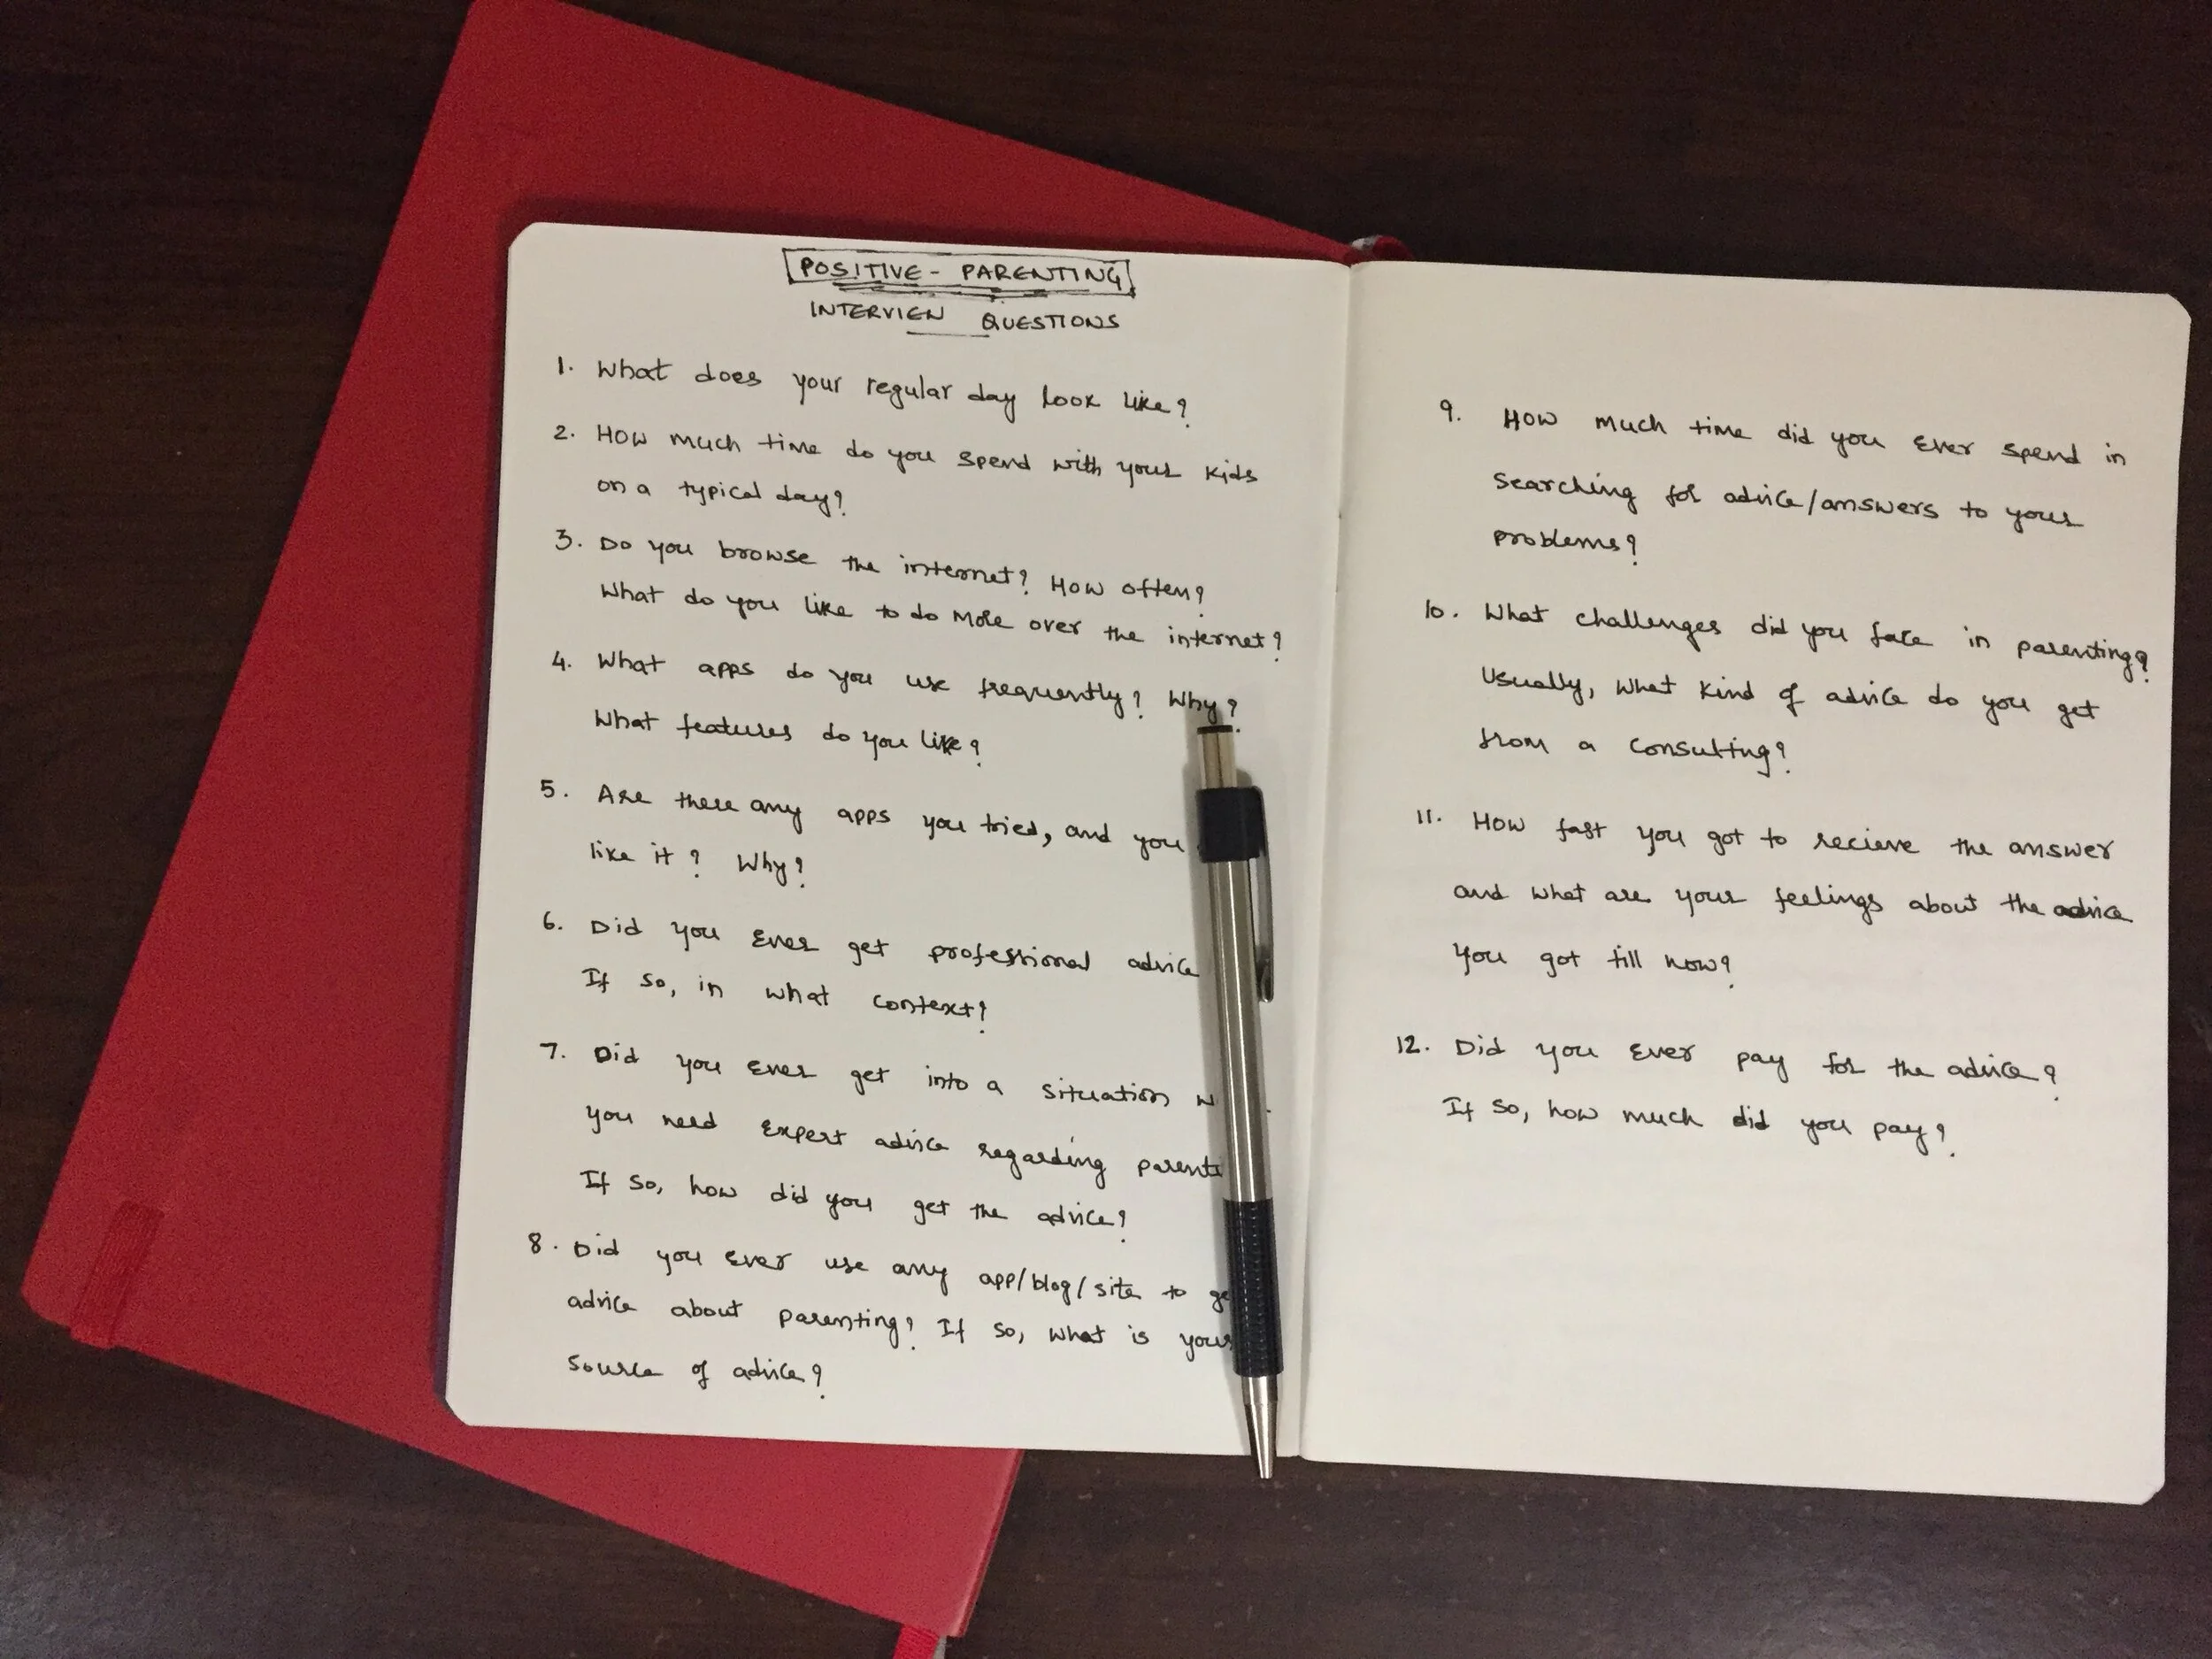 POSITIVE - PARENTING
INTERVIEW QUESTIONS
1. What does your regular day look like?
2. How much time do you spend with your kids
on a typical day?
3. Do you browse the internet? How often?
What do you like to do more over the internet?
4. What apps do you use frequently? Why?
What features do you like?
5. Are there any apps you tried, and you
like it? Why?
6. Did you ever get professional advice
If so, in what context?
7. Did you ever get into a situation
you need expert advice regarding
If so, how did you get the advice?
8. Did you ever use any app/blog/site to
advice about parenting? If so, what is your
source of advice?
9. How much time did you ever spend in
searching for advice/answers to your
problems?
10. What challenges did you face in parenting?
Usually, what kind of advice do you get
from a consulting?
11. How fast you got to recieve the answer
and what are your feelings about the advice
you got till now?
12. Did you ever pay for the advice?
If so, how much did you pay?